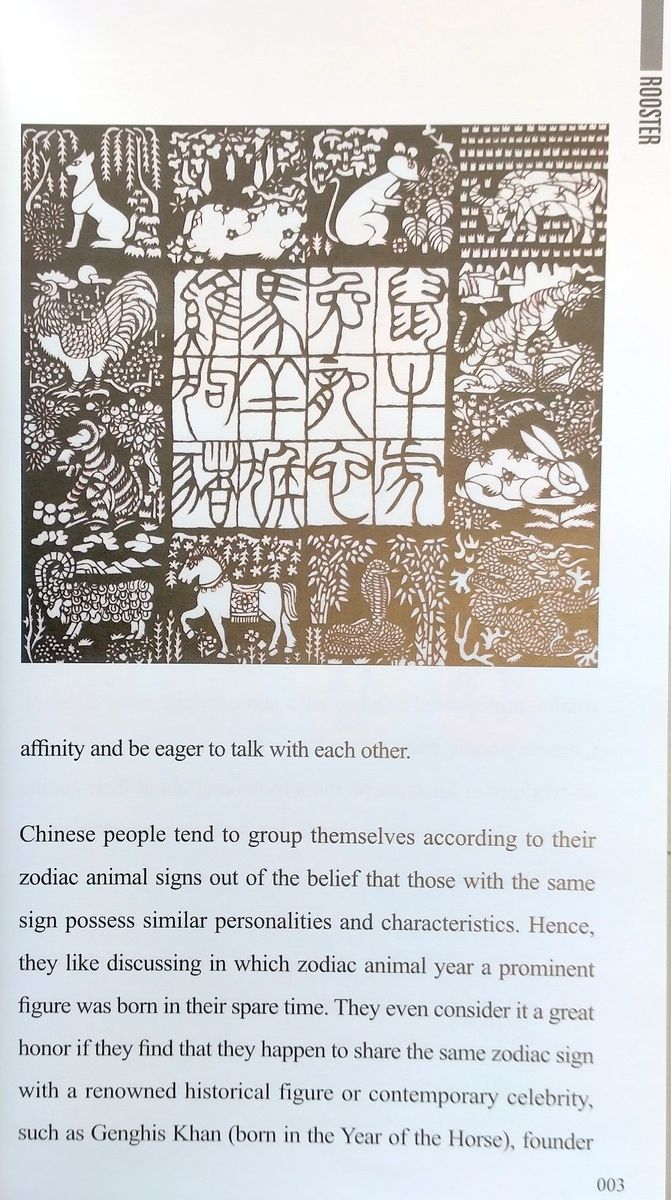 ROOSTER
鼠牛虎
兔
馬羊猴
雞狗豬
affinity and be eager to talk with each other.
Chinese people tend to group themselves according to their
zodiac animal signs out of the belief that those with the same
sign possess similar personalities and characteristics. Hence,
they like discussing in which zodiac animal year a prominent
figure was born in their spare time. They even consider it a great
honor if they find that they happen to share the same zodiac sign
with a renowned historical figure or contemporary celebrity,
such as Genghis Khan (born in the Year of the Horse), founder
003